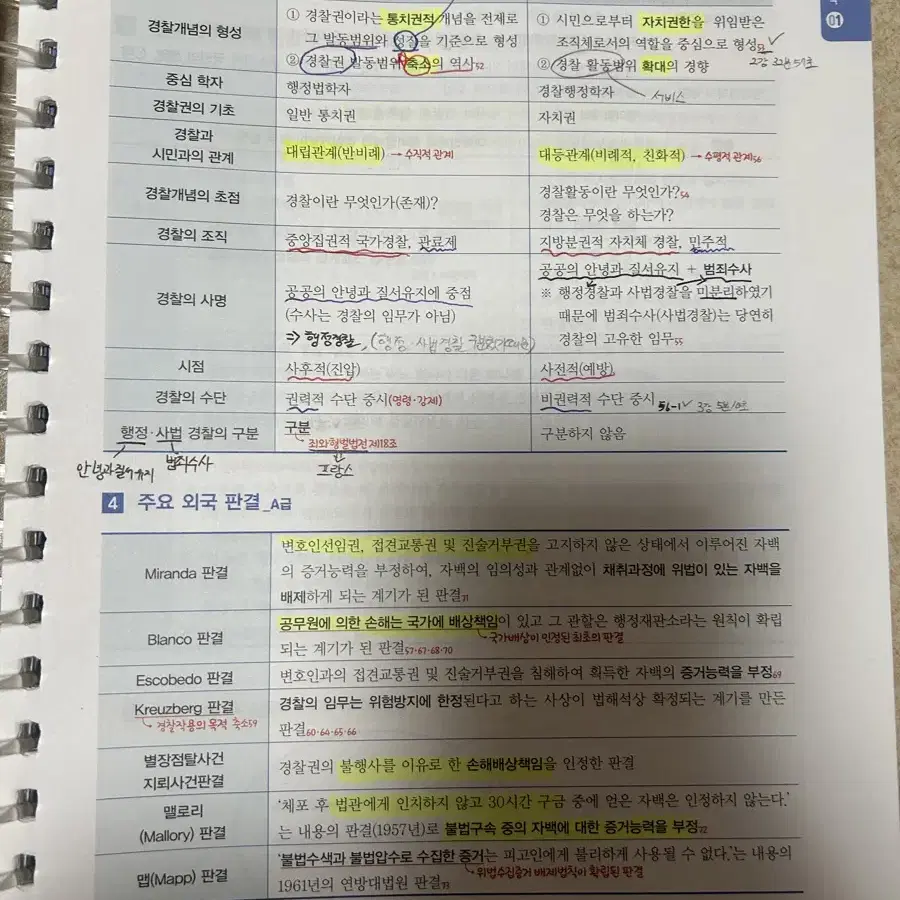 01
경찰개념의 형성
① 경찰권이라는 통치권적 개념을 전제로
그 발동범위와 성질을 기준으로 형성
② 경찰권 발동범위 축소의 역사52
① 시민으로부터 자치권한을 위임받은
조직체로서의 역할을 중심으로 형성53
② 경찰 활동범위 확대의 경향
서비스
중심 학자
행정법학자
경찰행정학자
경찰권의 기초
일반 통치권
자치권
경찰과
시민과의 관계
대립관계(반비례) → 수직적 관계
대등관계(비례적, 친화적) → 수평적 관계56
경찰개념의 초점
경찰이란 무엇인가(존재)?
경찰활동이란 무엇인가?54
경찰은 무엇을 하는가?
경찰의 조직
중앙집권적 국가경찰, 관료제
지방분권적 자치체 경찰, 민주적
경찰의 사명
공공의 안녕과 질서유지에 중점
(수사는 경찰의 임무가 아님)
⇒ 행정경찰, (행정·사법경찰
공공의 안녕과 질서유지 + 범죄수사
※ 행정경찰과 사법경찰을 미분리하였기
때문에 범죄수사(사법경찰)는 당연히
경찰의 고유한 임무55
시점
사후적(진압)
사전적(예방)
경찰의 수단
권력적 수단 중시(명령·강제)
비권력적 수단 중시 56-1
행정·사법 경찰의 구분
구분
죄와형벌법전 제18조
프랑스
구분하지 않음
안녕과질서유지
범죄수사
4 주요 외국 판결_A급
Miranda 판결
변호인선임권, 접견교통권 및 진술거부권을 고지하지 않은 상태에서 이루어진 자백
의 증거능력을 부정하여, 자백의 임의성과 관계없이 채취과정에 위법이 있는 자백을
배제하게 되는 계기가 된 판결71
Blanco 판결
공무원에 의한 손해는 국가에 배상책임이 있고 그 관할은 행정재판소라는 원칙이 확립
되는 계기가 된 판결57·67·68·70
국가배상이 인정된 최초의 판결
Escobedo 판결
변호인과의 접견교통권 및 진술거부권을 침해하여 획득한 자백의 증거능력을 부정69
Kreuzberg 판결
경찰작용의 목적 축소59
경찰의 임무는 위험방지에 한정된다고 하는 사상이 법해석상 확정되는 계기를 만든
판결60·64·65·66
별장점탈사건
지뢰사건판결
경찰권의 불행사를 이유로 한 손해배상책임을 인정한 판결
맬로리
(Mallory) 판결
‘체포 후 법관에게 인치하지 않고 30시간 구금 중에 얻은 자백은 인정하지 않는다.’
는 내용의 판결(1957년)로 불법구속 중의 자백에 대한 증거능력을 부정72
맵(Mapp) 판결
‘불법수색과 불법압수로 수집한 증거는 피고인에게 불리하게 사용될 수 없다.’는 내용의
1961년의 연방대법원 판결73
위법수집증거 배제법칙이 확립된 판결